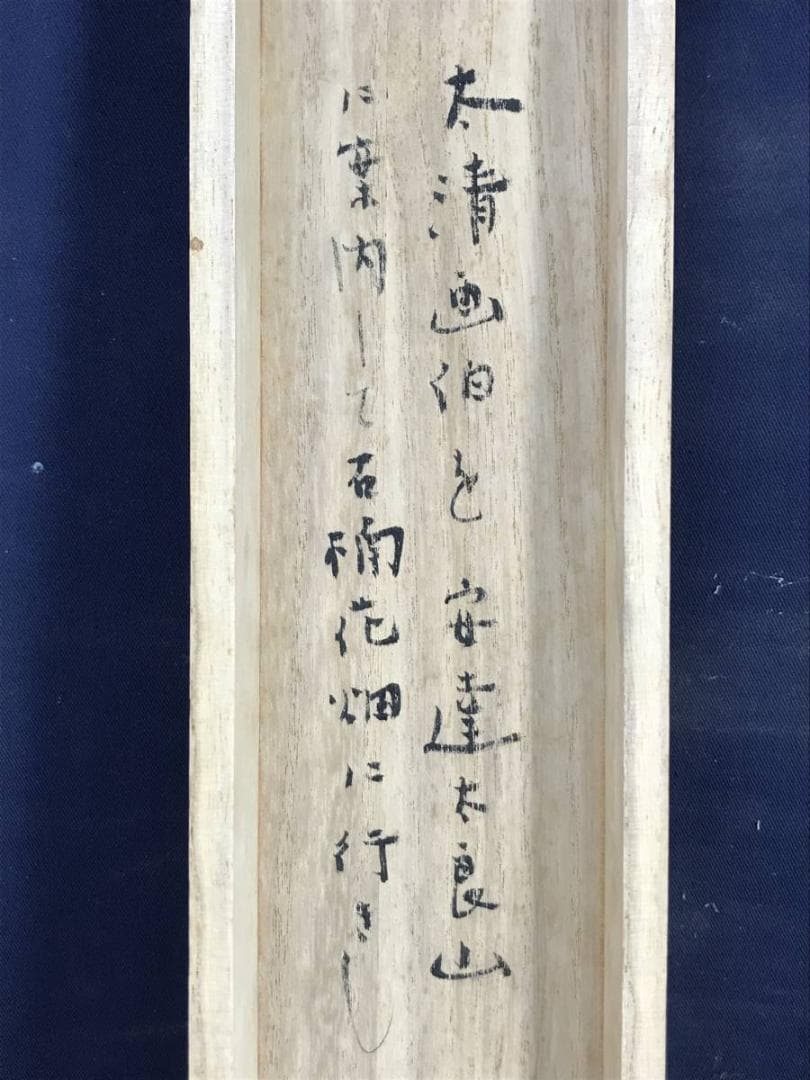 太清画伯を安達太良山
に案内して石楠花畑に行きし